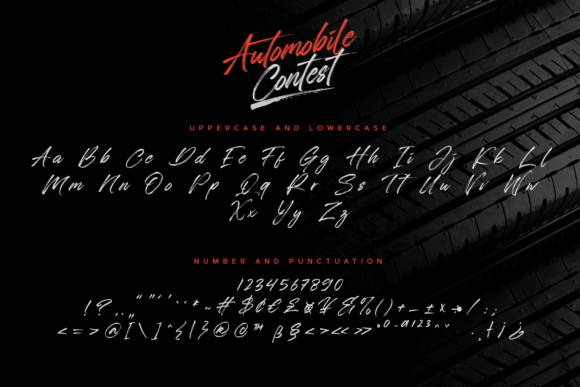 Automobile
Contest
UPPERCASE AND LOWERCASE
Aa Bb Cc Dd Ee Ff Gg Hh Ii Jj Kk Ll
Mm Nn Oo Pp Qq Rr Ss Tt Uu Vv Ww
Xx Yy Zz
NUMBER AND PUNCTUATION
1234567890
! ? , . „ “ ” ‘ ’ · • * ~ # $ ¢ € £ ¤ ¥ & % ( ) + – ± x ÷ / : ;
< = > @ [ \ ] ^ { | } @ © ™ β § < > « » º 0 - ª 1 2 3 ^ ˇ . , † ¡ ¿